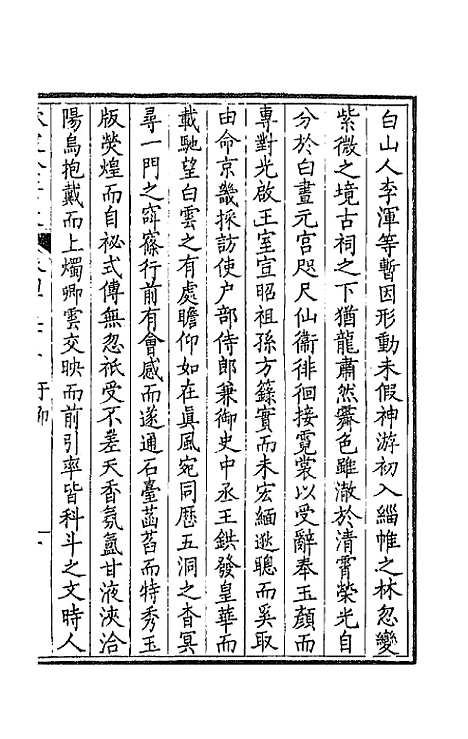 白山人李渾等暫因形動未假神游初入緇帷之林忽變
紫微之境古祠之下猶龍肅然霽色雖澈於清霄榮光自
分於白晝元宮咫尺仙衞徘徊接霓裳以受辭奉玉顔而
專對光啟王室宣昭祖孫方籙實而未宏緬遞聰而奚取
由命京畿採訪使户部侍郎兼御史中丞王鉷發皇華而
載馳望白雲之有處瞻仰如在眞風宛同歴五洞之杳冥
尋一門之窅窱行前有會感而遂通石臺菡萏而特秀玉
版熒煌而自祕式傳無忽祇受不差天香氛氲甘液浹洽
陽烏抱戴而上燭卿雲交映而前引率皆科斗之文時人